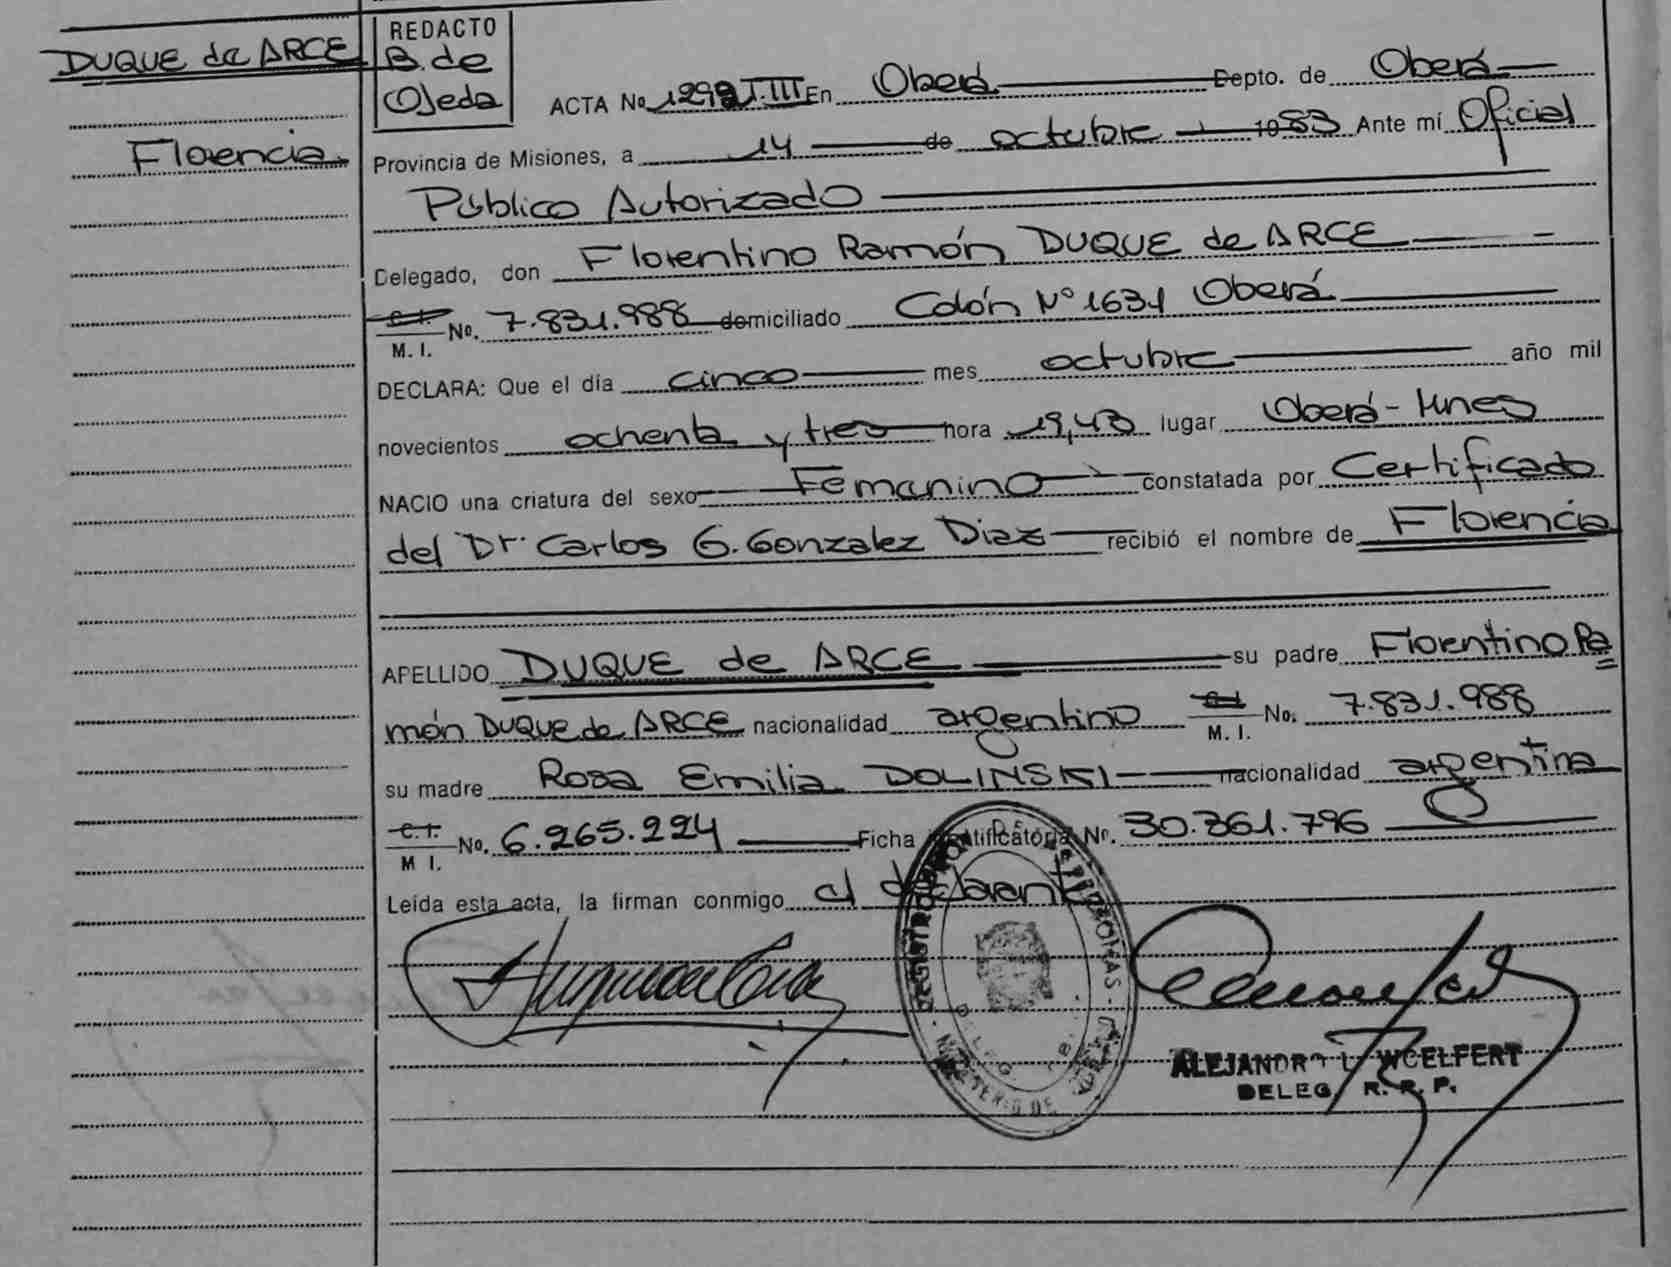 DUQUE de ARCE
Florencia
REDACTO
B. de
Ojeda
ACTA No 1292 T.III En Oberá Depto. de Oberá
Provincia de Misiones, a 14 de octubre 1983 Ante mí Oficial
Público Autorizado
Delegado, don Florentino Ramón DUQUE de ARCE
C.I.
M. I. No. 7.831.988 domiciliado Colón Nº 1631 Oberá
DECLARA: Que el día cinco mes octubre año mil
novecientos ochenta y tres hora 19,43 lugar Oberá-Mnes
NACIO una criatura del sexo Femenino constatada por Certificado
del Dr. Carlos G. Gonzalez Diaz recibió el nombre de Florencia
APELLIDO DUQUE de ARCE su padre Florentino Ra
món DUQUE de ARCE nacionalidad argentino C.I. M. I. No. 7.831.988
su madre Rosa Emilia DOLINSKI nacionalidad argentina
C.I.
M I. No. 6.265.224 Ficha identificatoria No. 30.361.796
Leída esta acta, la firman conmigo el declarante
ALEJANDRO L. WOELFERT
DELEG. R. R. P.